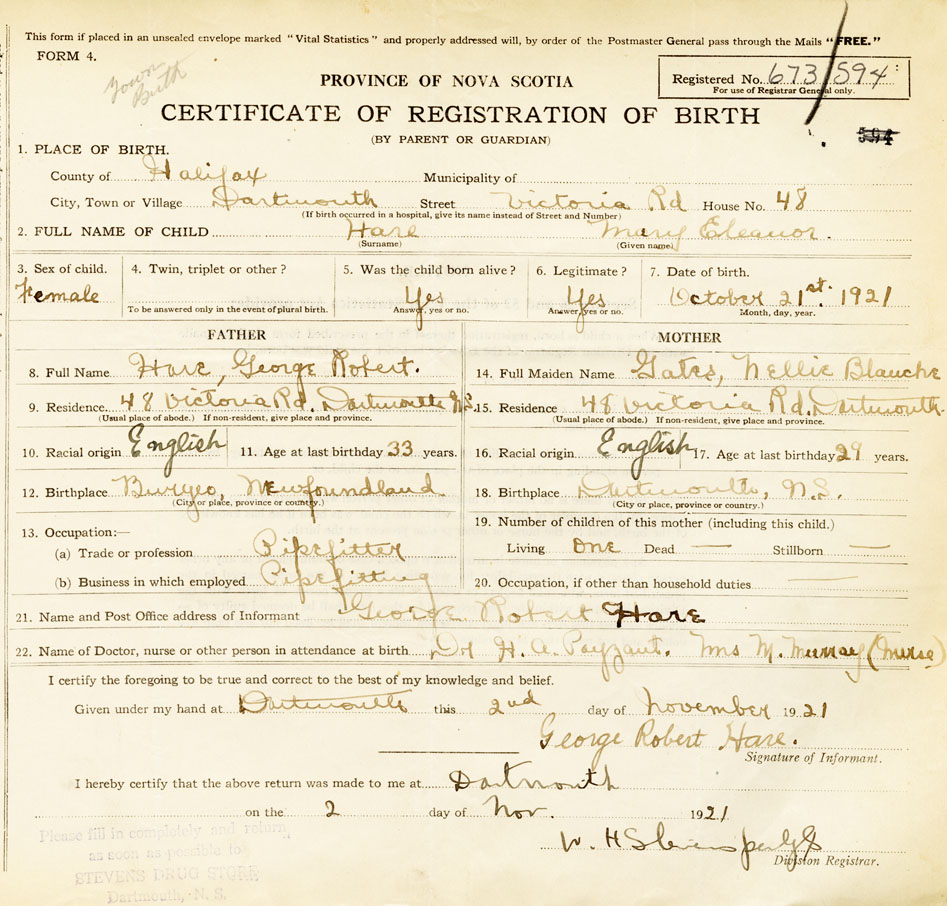 This form if placed in an unsealed envelope marked "Vital Statistics" and properly addressed will, by order of the Postmaster General pass through the Mails "FREE."
FORM 4.
PROVINCE OF NOVA SCOTIA
Registered No. 673/594
For use of Registrar General only.
CERTIFICATE OF REGISTRATION OF BIRTH
(BY PARENT OR GUARDIAN)
594
1. PLACE OF BIRTH.
County of Halifax Municipality of
City, Town or Village Dartmouth Street Victoria Rd House No. 48
(If birth occurred in a hospital, give its name instead of Street and Number)
2. FULL NAME OF CHILD Hare Mary Eleanor.
(Surname) (Given name)
3. Sex of child. 4. Twin, triplet or other? 5. Was the child born alive? 6. Legitimate? 7. Date of birth.
Female Yes Yes October 21st. 1921
To be answered only in the event of plural birth. Answer, yes or no. Answer, yes or no. Month, day, year.
FATHER MOTHER
8. Full Name Hare, George Robert. 14. Full Maiden Name Gates, Nellie Blanche
9. Residence 48 Victoria Rd. Dartmouth N.S. 15. Residence 48 Victoria Rd. Dartmouth.
(Usual place of abode.) If non-resident, give place and province. (Usual place of abode.) If non-resident, give place and province.
10. Racial origin English 11. Age at last birthday 33 years. 16. Racial origin English 17. Age at last birthday 29 years.
12. Birthplace Burgeo, Newfoundland. 18. Birthplace Dartmouth, N.S.
(City or place, province or country.) (City or place, province or country.)
13. Occupation:— 19. Number of children of this mother (including this child.)
(a) Trade or profession Pipefitter Living One Dead — Stillborn —
(b) Business in which employed Pipefitting 20. Occupation, if other than household duties —
21. Name and Post Office address of Informant George Robert Hare
22. Name of Doctor, nurse or other person in attendance at birth Dr H. A. Payzant. Mrs M. Murray (Nurse)
I certify the foregoing to be true and correct to the best of my knowledge and belief.
Given under my hand at Dartmouth this 2nd day of November 1921
George Robert Hare.
Signature of Informant.
I hereby certify that the above return was made to me at Dartmouth
on the 2 day of Nov. 1921
Please fill in completely and return
as soon as possible to
STEVENS DRUG STORE
Dartmouth, N. S.
W. H Stevens
Division Registrar.